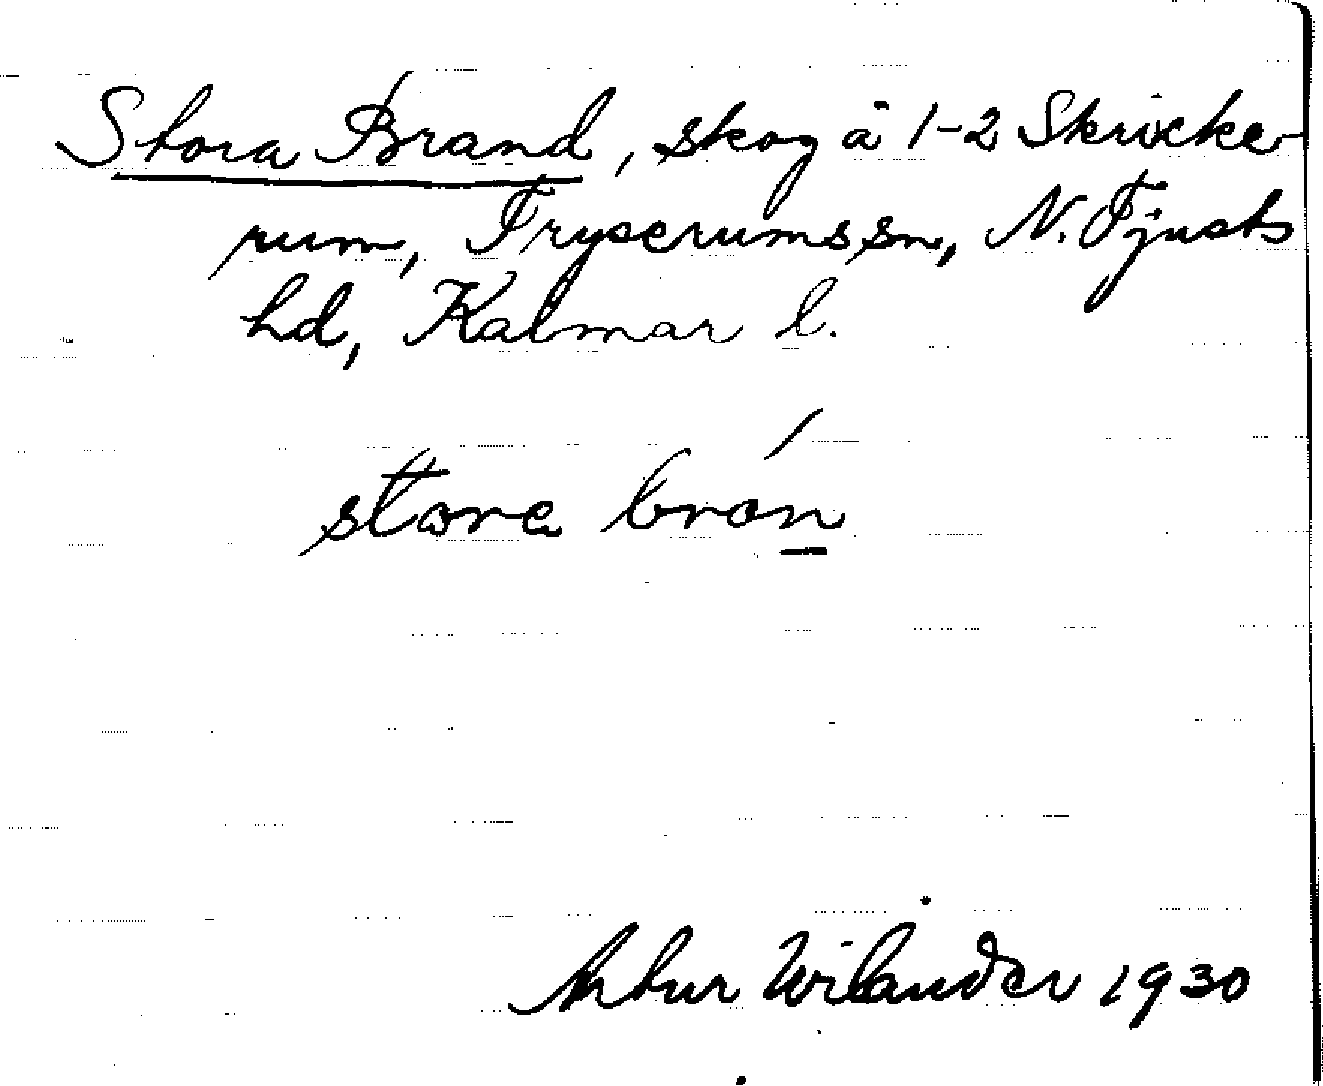 Stora Brand, skog å 1-2 Skricke-
rum, Tryserums sn, N. Tjusts
hd, Kalmar l.
stora bran
Artur Wilander 1930